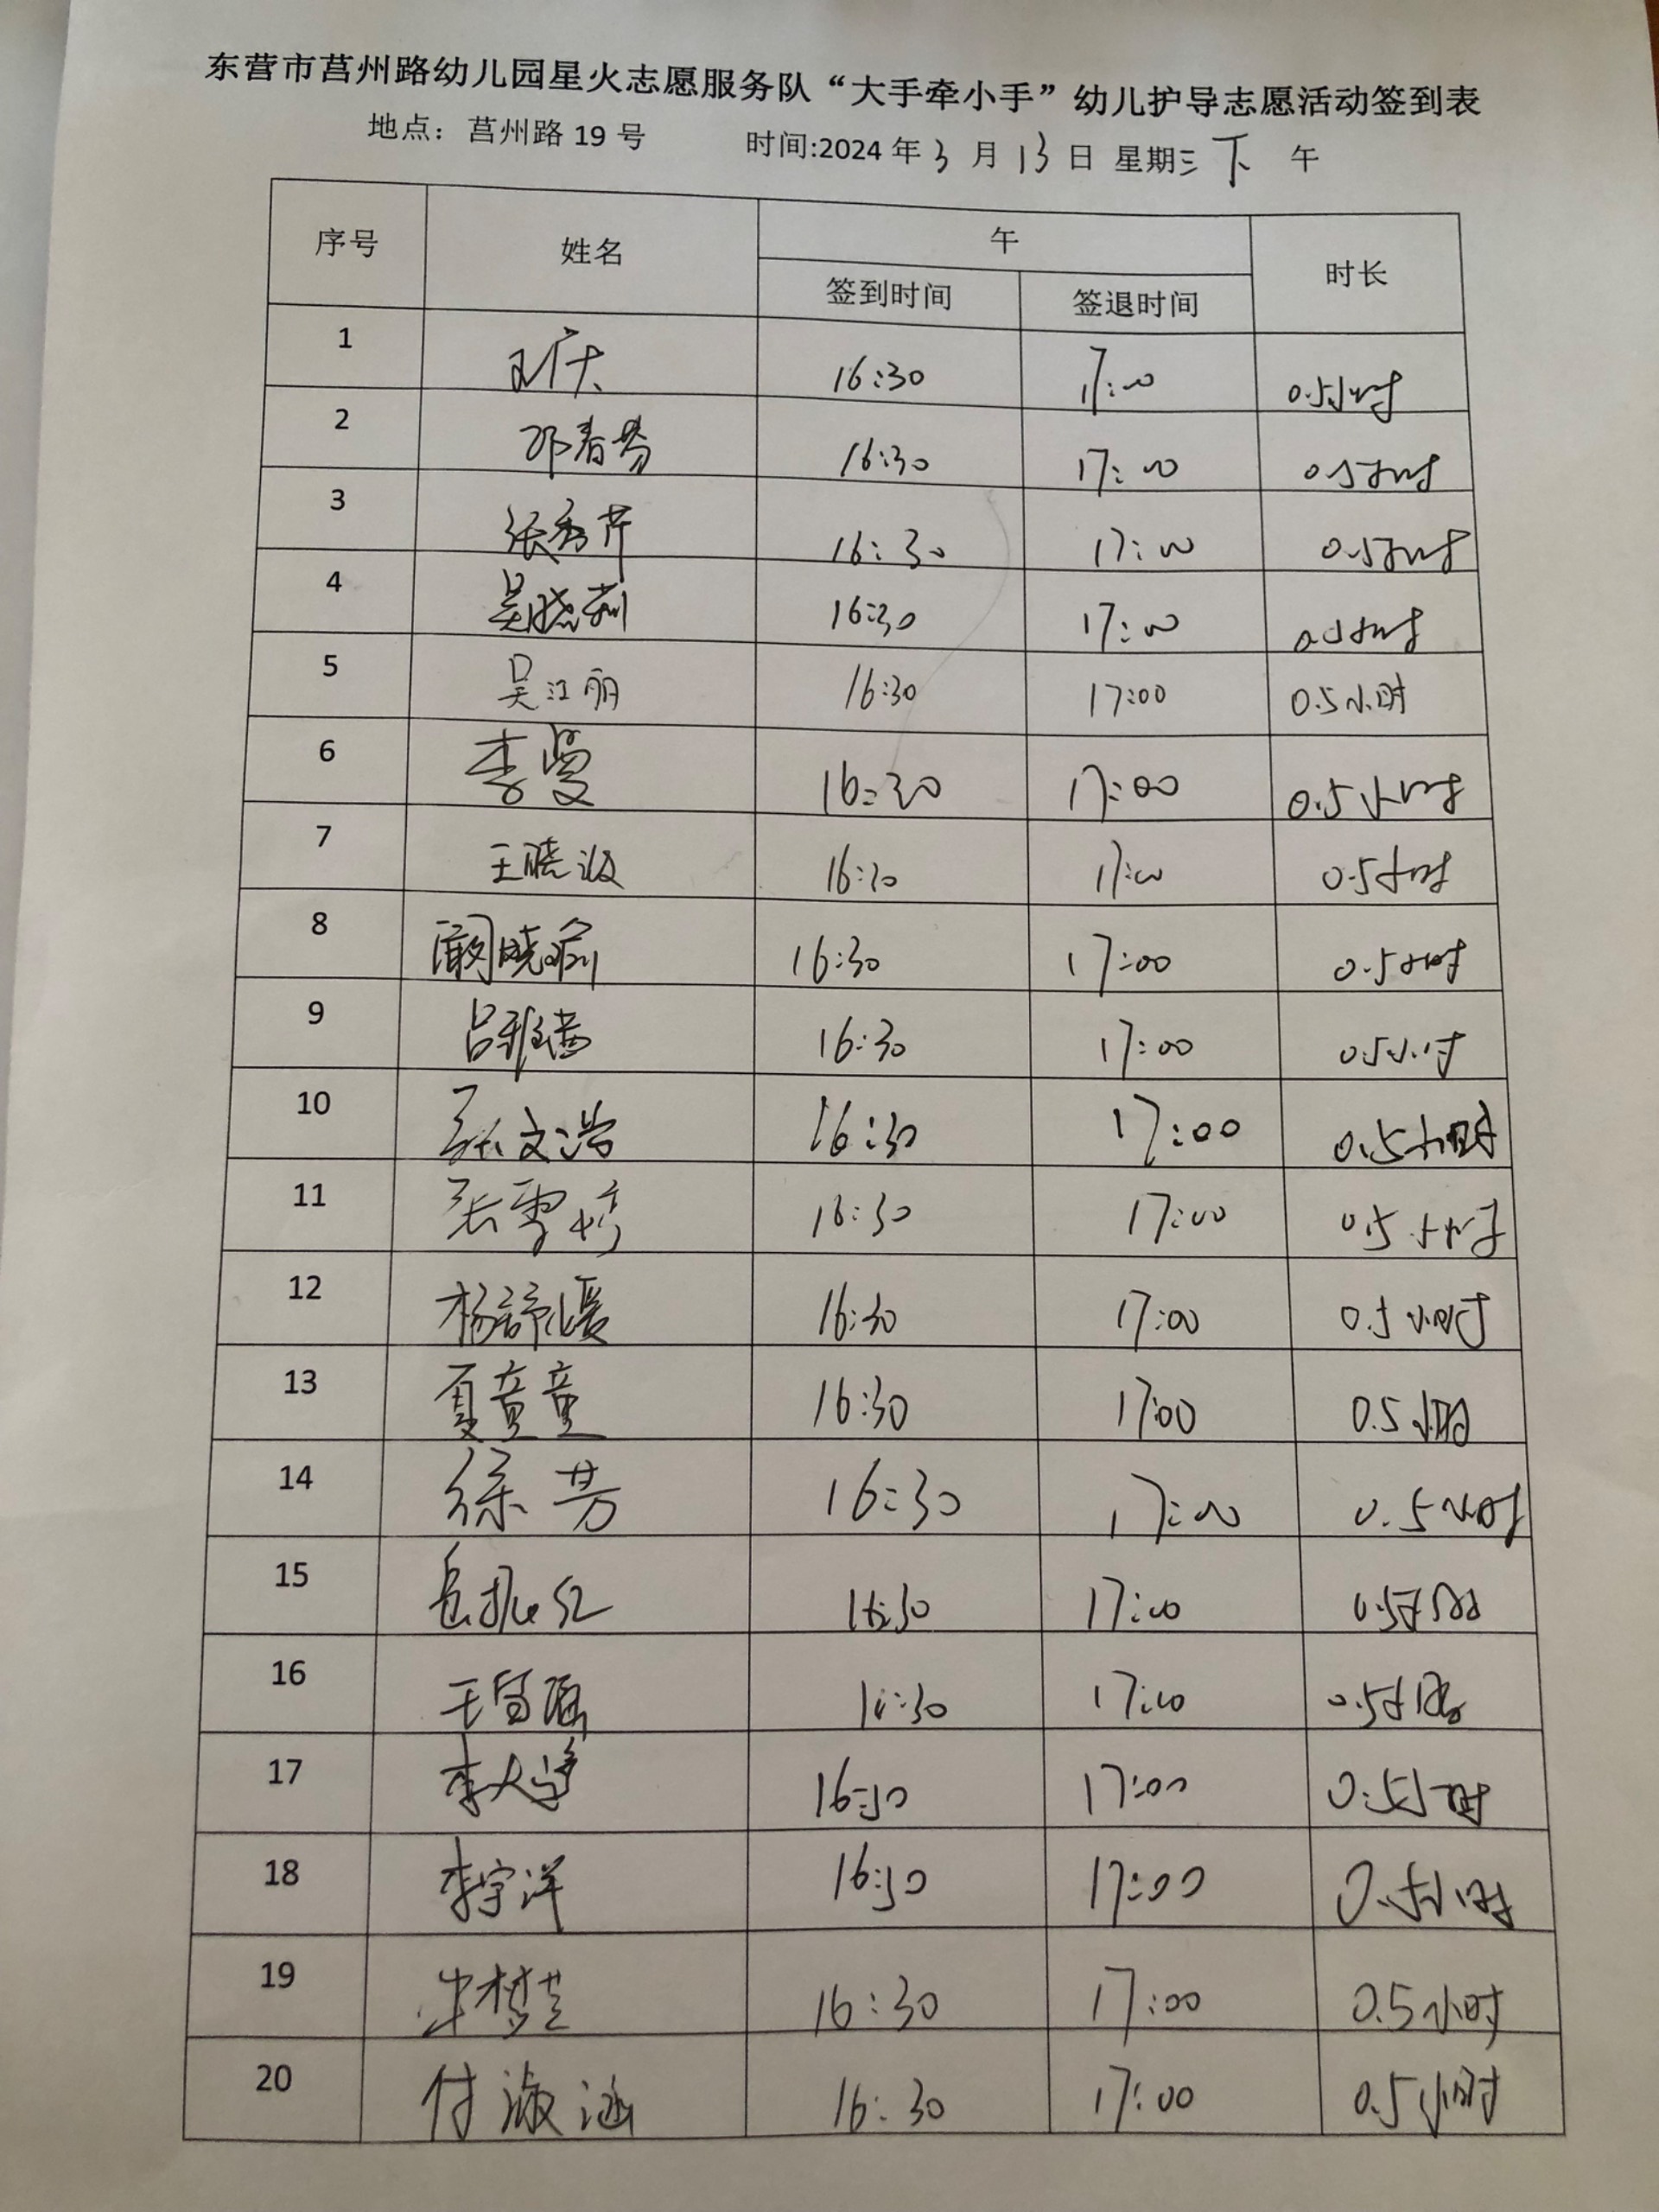 东营市莒州路幼儿园星火志愿服务队“大手牵小手”幼儿护导志愿活动签到表
地点：莒州路 19 号 时间:2024 年 3 月 13 日 星期三 下 午
序号 姓名 午 时长
签到时间 签退时间
1 16:30 17:00 0.5小时
2 邓春芳 16:30 17:00 0.5小时
3 张秀芹 16:30 17:00 0.5小时
4 吴晓莉 16:30 17:00 0.5小时
5 吴江丽 16:30 17:00 0.5小时
6 李曼 16:30 17:00 0.5小时
7 王晓波 16:30 17:00 0.5小时
8 阚晓莉 16:30 17:00 0.5小时
9 吕雅茜 16:30 17:00 0.5小时
10 张文浩 16:30 17:00 0.5小时
11 张雪婷 16:30 17:00 0.5小时
12 杨舒媛 16:30 17:00 0.5小时
13 夏童童 16:30 17:00 0.5小时
14 徐芳 16:30 17:00 0.5小时
15 岳振红 16:30 17:00 0.5小时
16 16:30 17:00 0.5小时
17 16:30 17:00 0.5小时
18 李宇洋 16:30 17:00 0.5小时
19 16:30 17:00 0.5小时
20 付淑涵 16:30 17:00 0.5小时